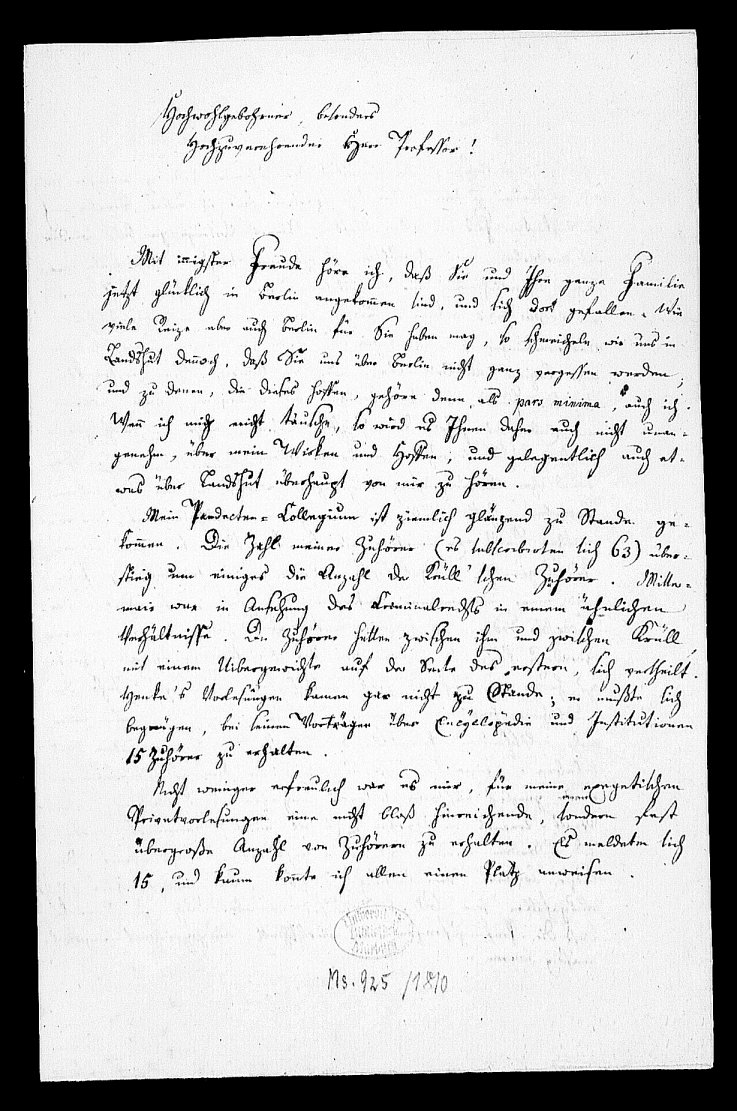 Hochwohlgebohrner, besonders
Hochzuverehrender Herr Professor!
Mit innigster Freude höre ich, daß Sie und Ihre ganze Familie
jetzt glücklich in Berlin angekommen sind, und sich dort gefallen. Wie
viele Reize aber auch Berlin für Sie haben mag, so schmeicheln wir uns in
Landshut dennoch, daß Sie uns über Berlin nicht ganz vergessen werden;
und zu denen, die dieses hoffen, gehöre denn als pars minima, auch ich.
Wenn ich mich nicht täusche, so wird es Ihnen daher auch nicht unan-
genehm, über mein Wirken und Hoffen, und gelegentlich auch et-
was über Landshut überhaupt von mir zu hören.
Mein Pandecten-Collegium ist ziemlich glänzend zu Stande ge-
kommen. Die Zahl meiner Zuhörer (es subscribirten sich 63) über-
stieg um einiges die Anzahl der Krüll'schen Zuhörer. Mitter-
maier war in Ansehung des Criminalrechts in einem ähnlichen
Verhältnisse. Die Zuhörer hatten zwischen ihm und zwischen Krüll,
mit einem Übergewichte auf der Seite des erstern, sich vertheilt.
Henke's Vorlesungen kamen gar nicht zu Stande; er mußte sich
begnügen, bei seinen Vorträgen über Encyclopädie und Institutionen
15 Zuhörer zu erhalten.
Nicht weniger erfreulich war es mir, für meine exegetischen
Privatvorlesungen eine nicht bloß hinreichende, sondern fast
übergroße Anzahl von Zuhörern zu erhalten. Es meldeten sich
15, und kaum konnte ich allen einen Platz anweisen.
Ms. 925 /1810